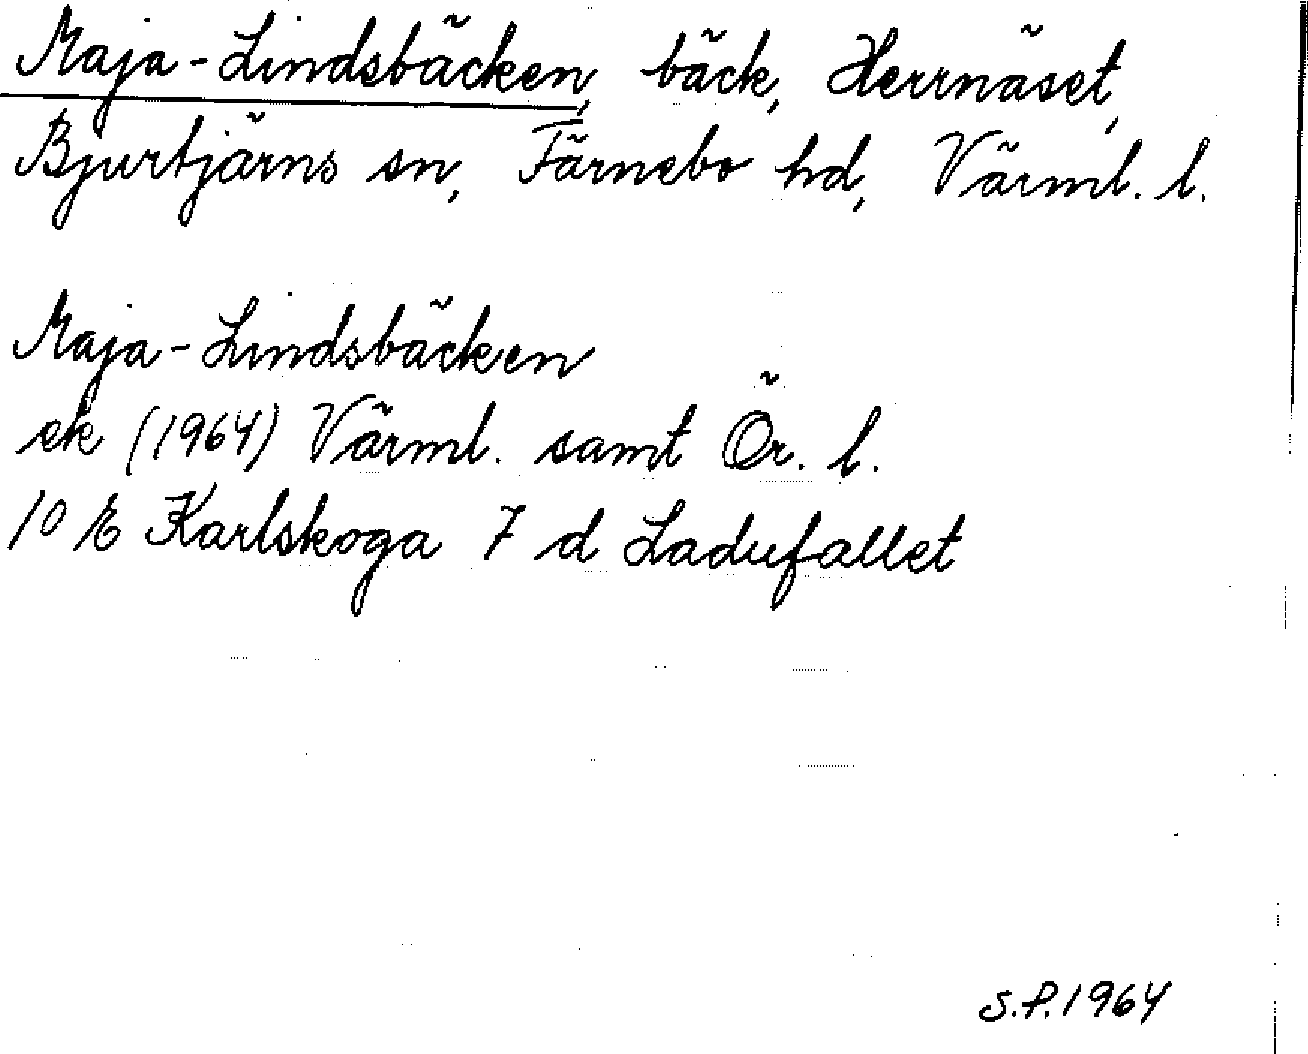 Maja-Lindsbäcken, bäck, Herrnäset,
Bjurtjärns sn, Färnebo hd, Värml. l.
Maja-Lindsbäcken
ek (1964) Värml. samt Ör. l.
10 E Karlskoga 7 d Ladufallet
S.P. 1964